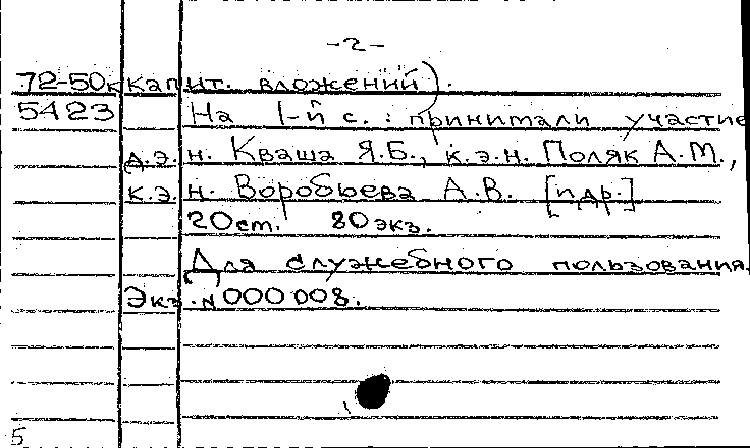 -2-
72-50к капит. вложений).
5423 На 1-й с.: принимали участие
д.э.н. Кваша Я.Б., к.э.н. Поляк А.М.,
к.э.н. Воробьева А.В. [и др.]
20 ст. 80 экз.
Для служебного пользования.
Экз. N 000008.
5